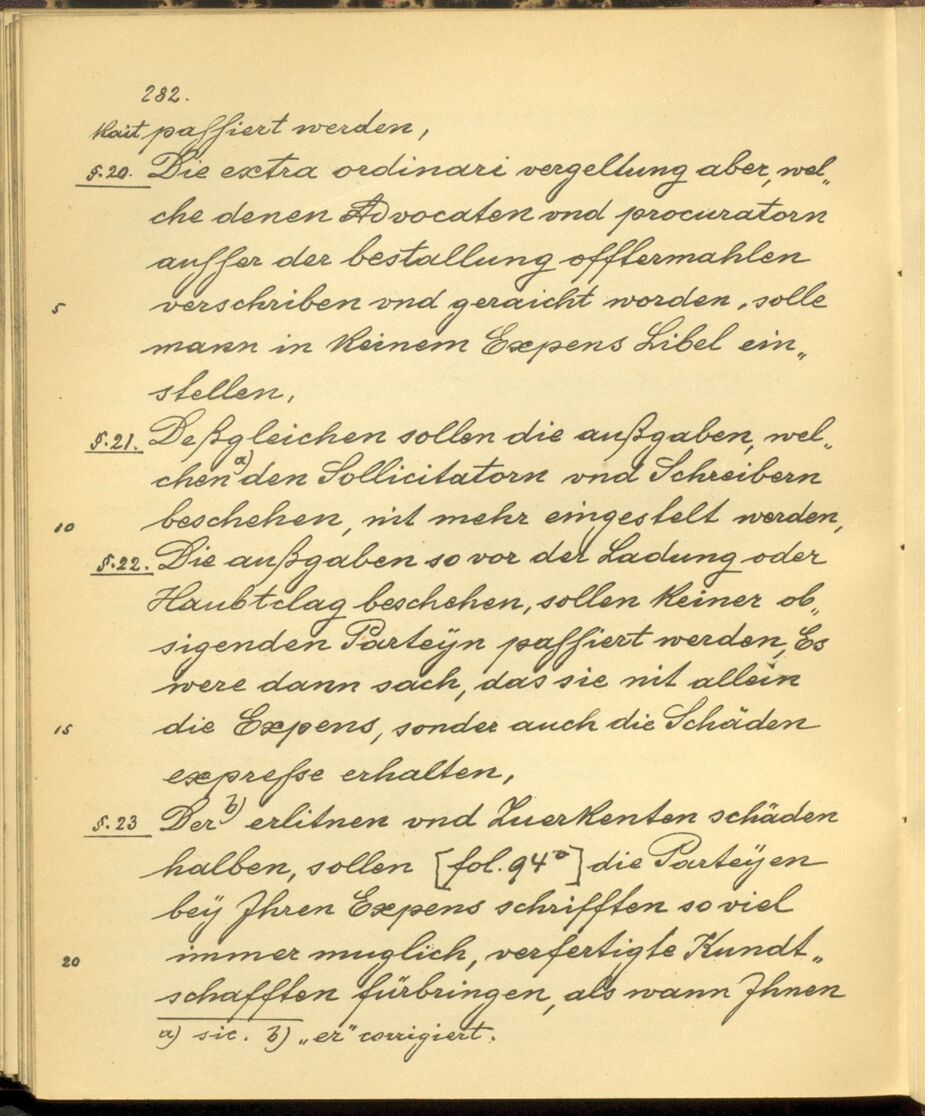 282.
Kait passiert werden,
§.20. Die extra ordinari vergeltung aber, wel„
che denen Advocaten vnd procuratorn
ausser der bestallung offtermahlen
5 verschriben vnd geraicht worden, solle
mann in keinem Expens Libel ein„
stellen,
§.21. Deßgleichen sollen die außgaben, wel„
chen a) den Sollicitatorn vnd Schreibern
10 beschehen, nit mehr eingestelt werden,
§.22. Die außgaben so vor der Ladung oder
Haubtclag beschehen, sollen keiner ob„
sigenden Parteÿn passiert werden, Es
were dann sach, das sie nit allein
15 die Expens, sonder auch die Schäden
expresse erhalten,
§.23 Der b) erlitnen vnd Zuerkenten schäden
halben, sollen [fol. 94v] die Parteÿen
beÿ Jhren Expens schrifften so viel
20 immer muglich, verfertigte Kundt„
schafften fürbringen, als wann Jhnen
a) sic. b) „er" corrigiert.